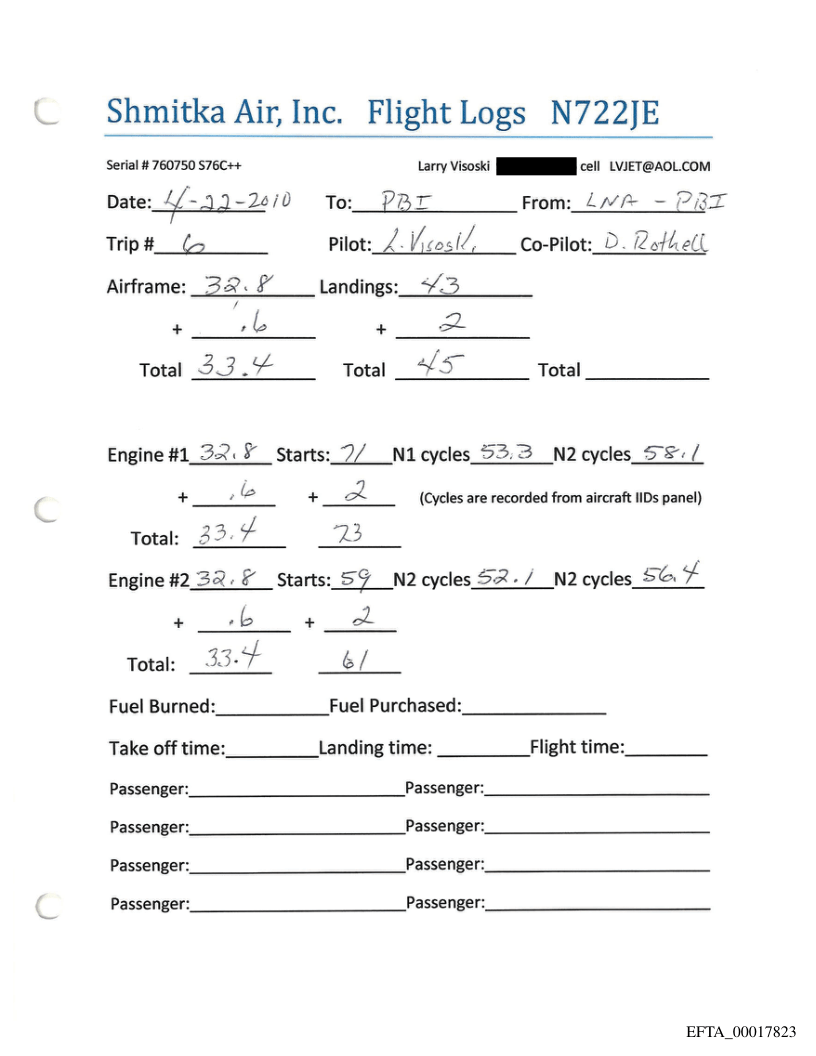 Shmitka Air, Inc. Flight Logs N722JE
Serial # 760750 S76C++ Larry Visoski cell LVJET@AOL.COM
Date: 4-22-2010 To: PBI From: LNA - PBI
Trip # 6 Pilot: L. Visoski Co-Pilot: D. Rothell
Airframe: 32.8 Landings: 43
+ .6 + 2
Total 33.4 Total 45 Total
Engine #1 32.8 Starts: 71 N1 cycles 53.3 N2 cycles 58.1
+ .6 + 2 (Cycles are recorded from aircraft IIDs panel)
Total: 33.4 73
Engine #2 32.8 Starts: 59 N2 cycles 52.1 N2 cycles 56.4
+ .6 + 2
Total: 33.4 61
Fuel Burned: Fuel Purchased:
Take off time: Landing time: Flight time:
Passenger: Passenger:
Passenger: Passenger:
Passenger: Passenger:
Passenger: Passenger:
EFTA_00017823